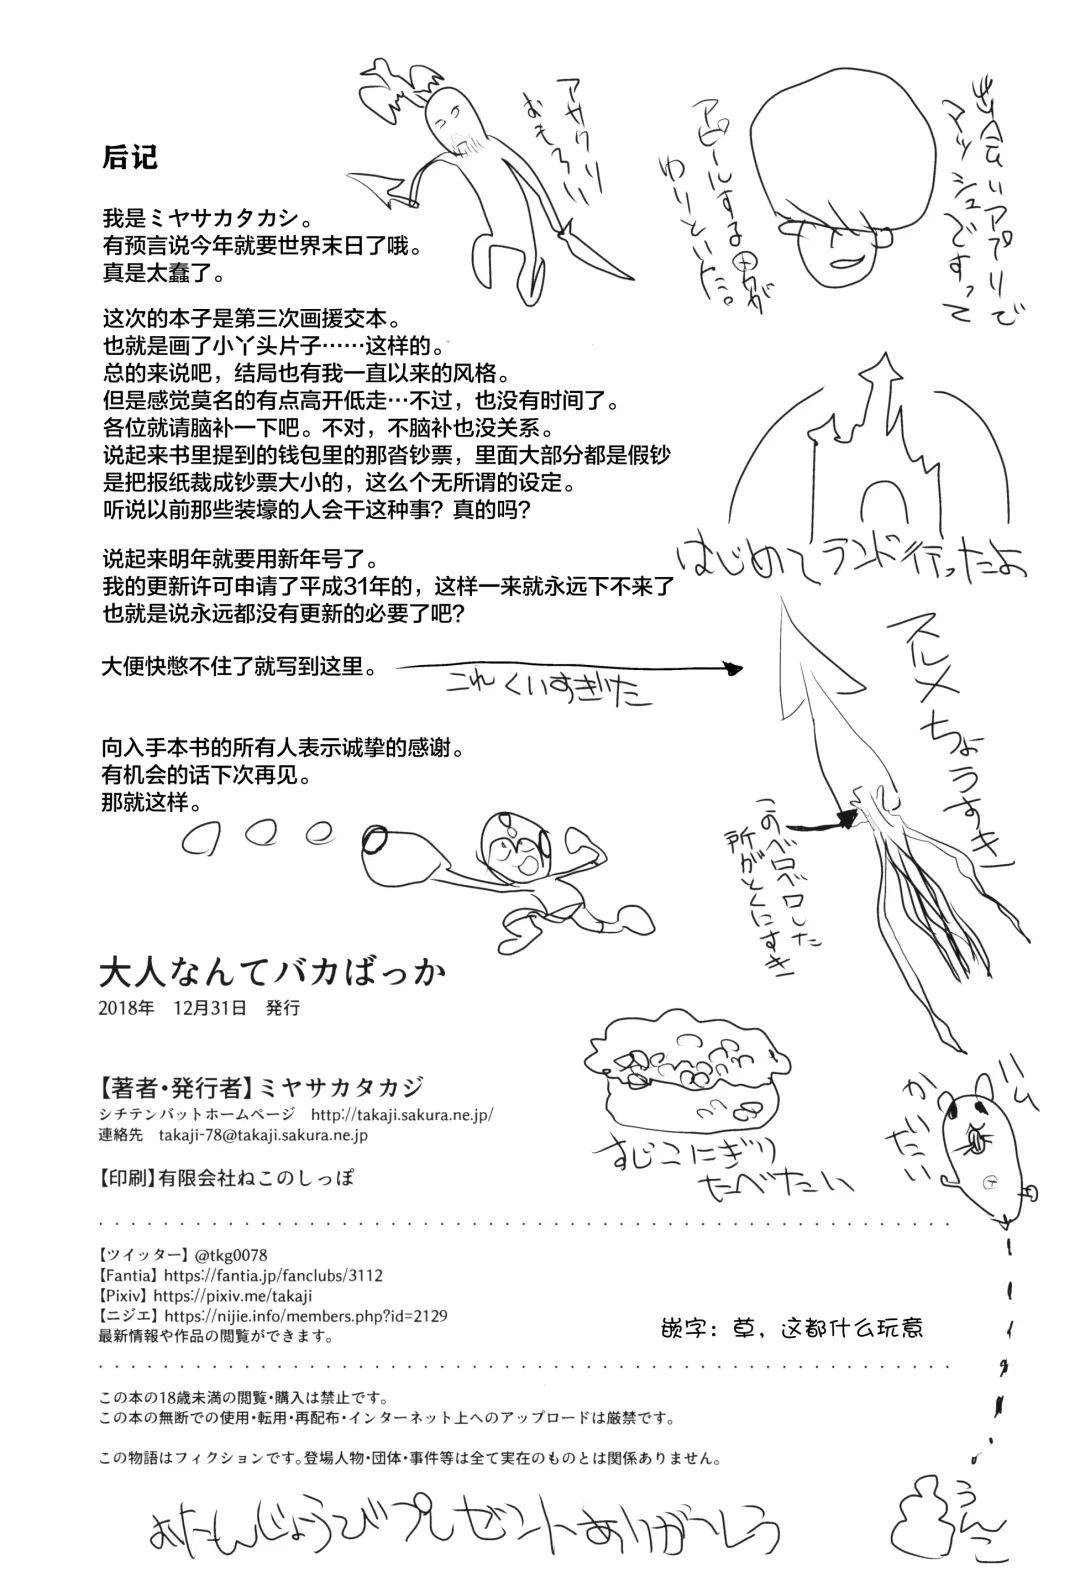 后记
我是ミヤサカタカシ。
有预言说今年就要世界末日了哦。
真是太蠢了。
这次的本子是第三次画援交本。
也就是画了小丫头片子……这样的。
总的来说吧，结局也有我一直以来的风格。
但是感觉莫名的有点高开低走…不过，也没有时间了。
各位就请脑补一下吧。不对，不脑补也没关系。
说起来书里提到的钱包里的那沓钞票，里面大部分都是假钞
是把报纸裁成钞票大小的，这么个无所谓的设定。
听说以前那些装壕的人会干这种事？真的吗？
说起来明年就要用新年号了。
我的更新许可申请了平成31年的，这样一来就永远下不来了
也就是说永远都没有更新的必要了吧？
大便快憋不住了就写到这里。
向入手本书的所有人表示诚挚的感谢。
有机会的话下次再见。
那就这样。
アサクリ
おもろい
出会いアプリで
マッシュですって
アピールする男が
わりといた。
はじめてランド行ったよ
これくいすぎた
スルメちょうすき
このベロベロした
所がとくにすき
すじこにぎり
たべたい
ハム
かいたい
うんこ
大人なんてバカばっか
2018年　12月31日　発行
【著者・発行者】ミヤサカタカジ
シチテンバットホームページ　http://takaji.sakura.ne.jp/
連絡先　takaji-78@takaji.sakura.ne.jp
【印刷】有限会社ねこのしっぽ
【ツイッター】@tkg0078
【Fantia】https://fantia.jp/fanclubs/3112
【Pixiv】https://pixiv.me/takaji
【ニジエ】https://nijie.info/members.php?id=2129
最新情報や作品の閲覧ができます。
嵌字：草，这都什么玩意
この本の18歳未満の閲覧・購入は禁止です。
この本の無断での使用・転用・再配布・インターネット上へのアップロードは厳禁です。
この物語はフィクションです。登場人物・団体・事件等は全て実在のものとは関係ありません。
おたんじょうびプレゼントありがとう